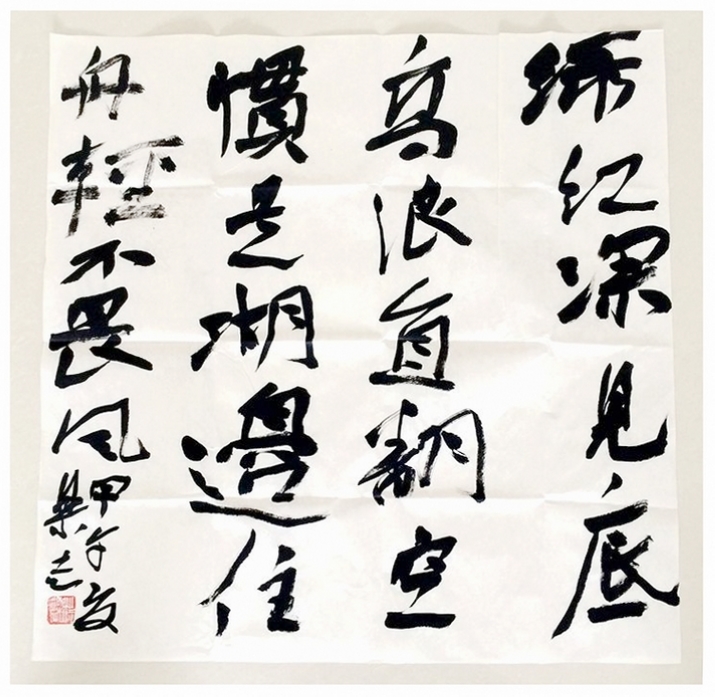 绿江深見底
高浪直翻空
慣是湖邊住
舟輕不畏風
甲午夏